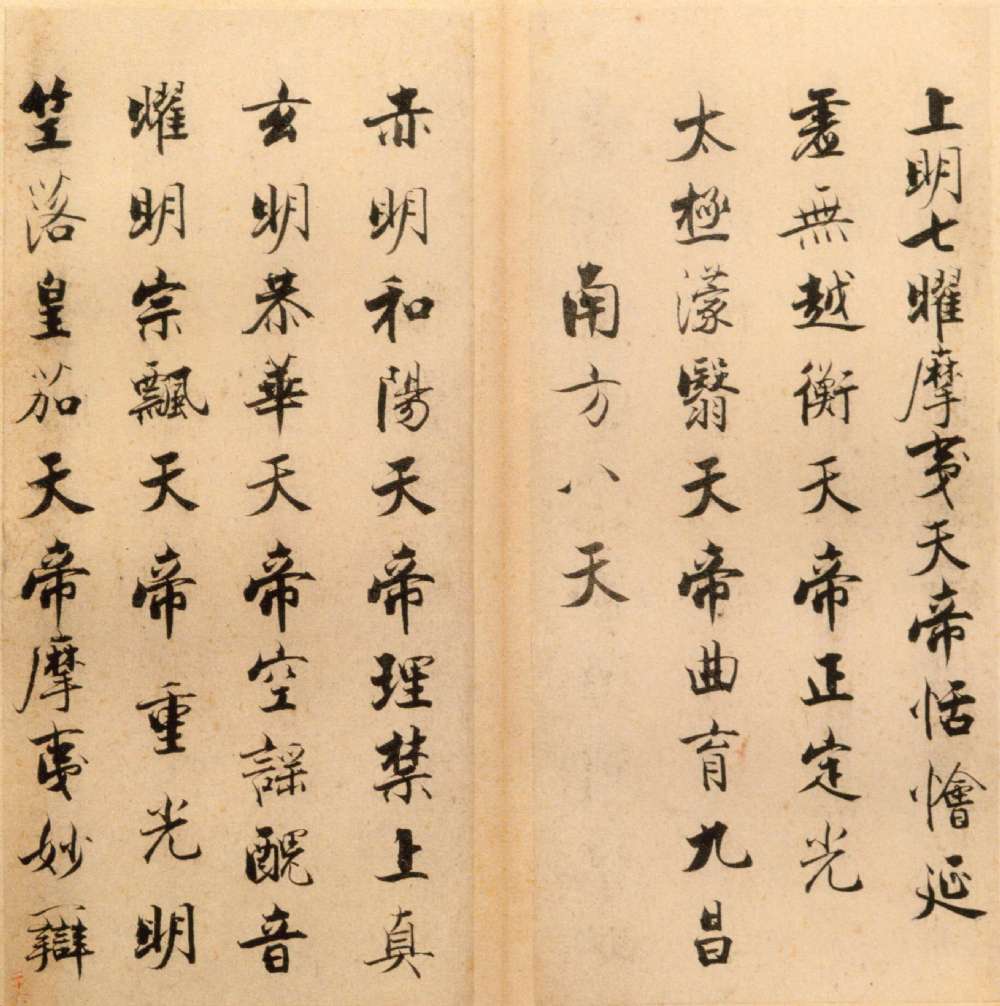 上明七曜摩夷天帝恬懀延
虛無越衡天帝正定光
太極濛翳天帝曲育九昌
南方八天
赤明和陽天帝理禁上真
玄明恭華天帝空謡醜音
耀明宗飄天帝重光明
竺落皇茄天帝摩夷妙辯